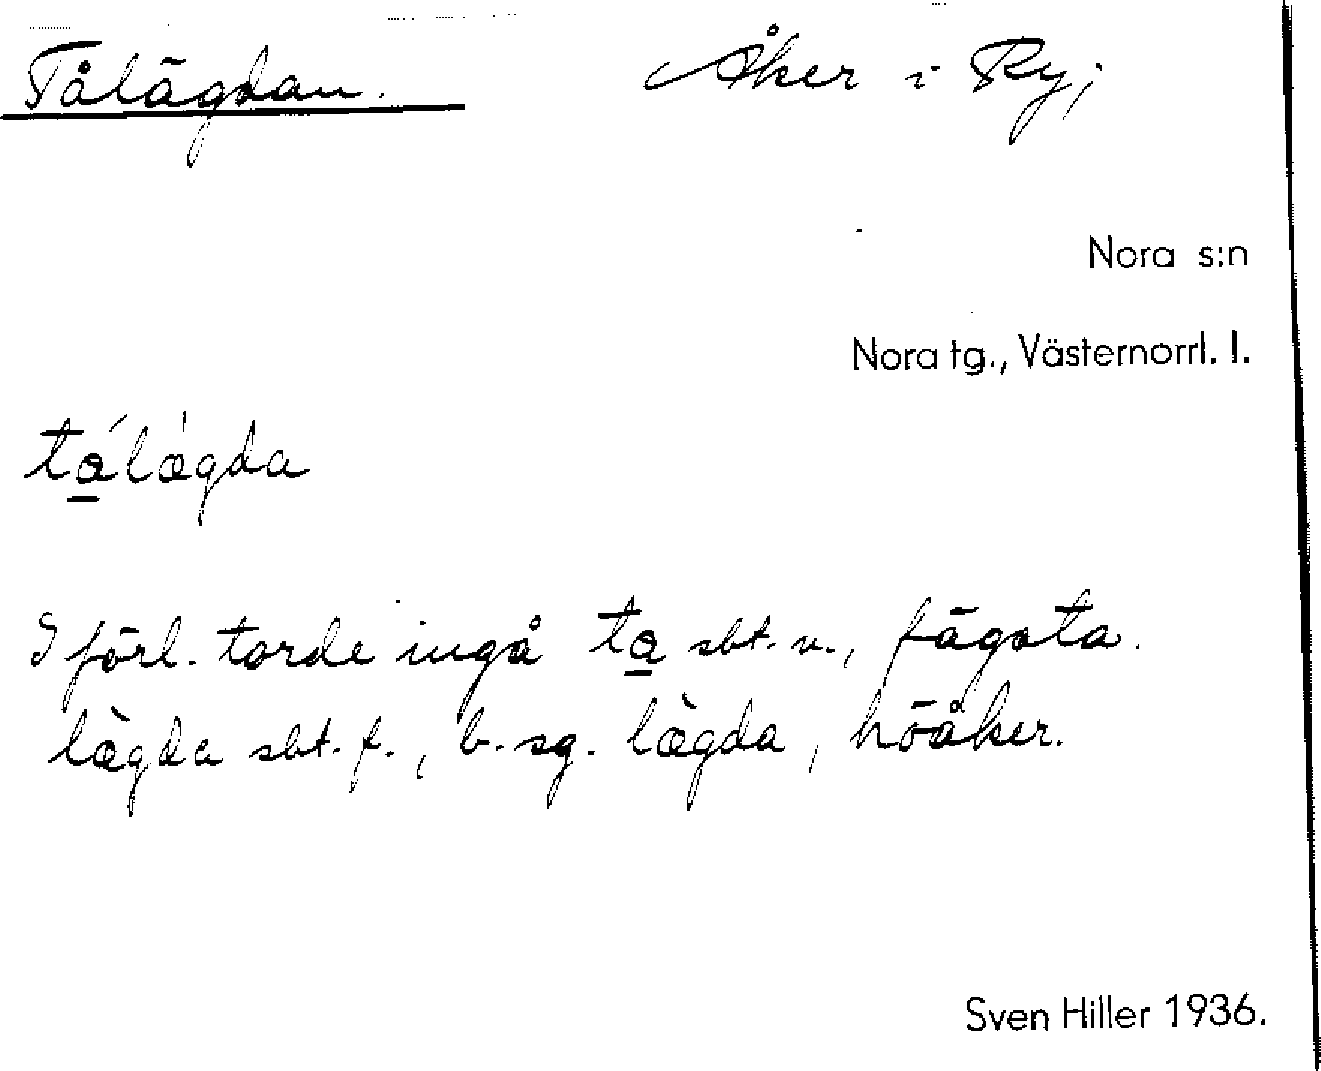 Tålägdan. Åker i Ry;
Nora s:n
Nora tg., Västernorrl. l.
ta̲´lægda
I förl. torde ingå ta̲ sbt. n., fägata.
lægda sbt. f., b. sg. lægda, höåker.
Sven Hiller 1936.